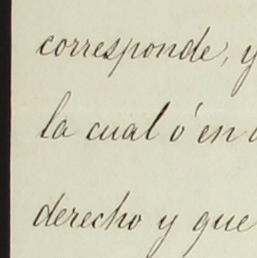 corresponde, y
la cual ó en
derecho y que